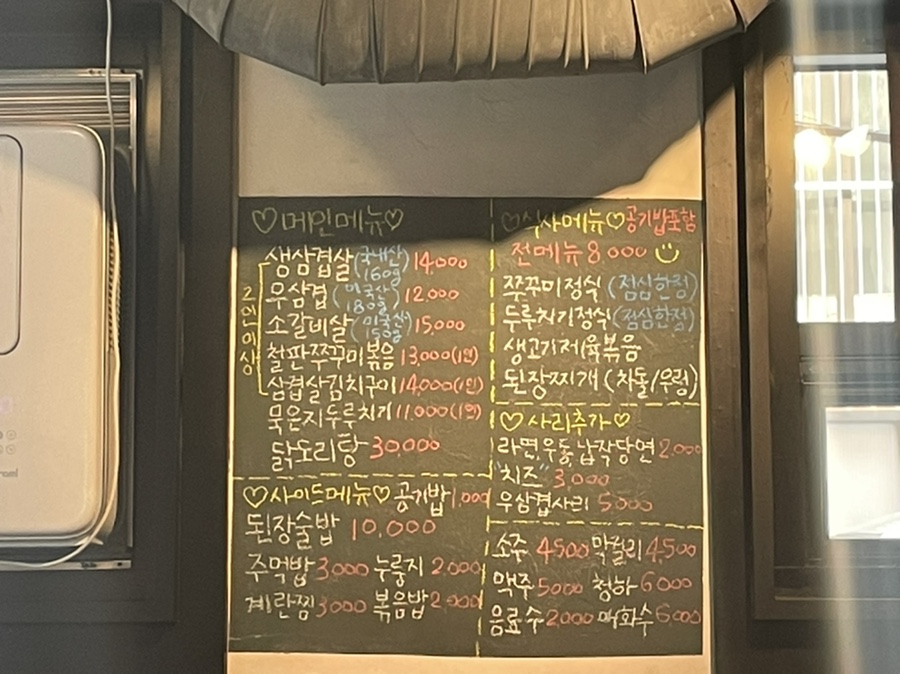 ♡메인메뉴♡
생삼겹살(국내산 160g) 14,000
우삼겹(미국산 180g) 12,000
소갈비살(미국산 150g) 15,000
철판쭈꾸미볶음 13,000(1인)
삼겹살김치구이 14,000(1인)
2인이상
묵은지두루치기 11,000(1인)
닭도리탕 30,000
♡사이드메뉴♡ 공기밥 1,000
된장술밥 10,000
주먹밥 3,000 누룽지 2,000
계란찜 3,000 볶음밥 2,000
♡식사메뉴♡공기밥포함
전메뉴 8000
쭈꾸미정식(점심한정)
두루치기정식(점심한정)
생고기제육볶음
된장찌개(차돌/우렁)
♡사리추가♡
라면,우동,납작당면 2,000
"치즈" 3,000
우삼겹사리 5000
소주 4500 막걸리 4,500
맥주 5000 청하 6000
음료수 2000 매화수 6000